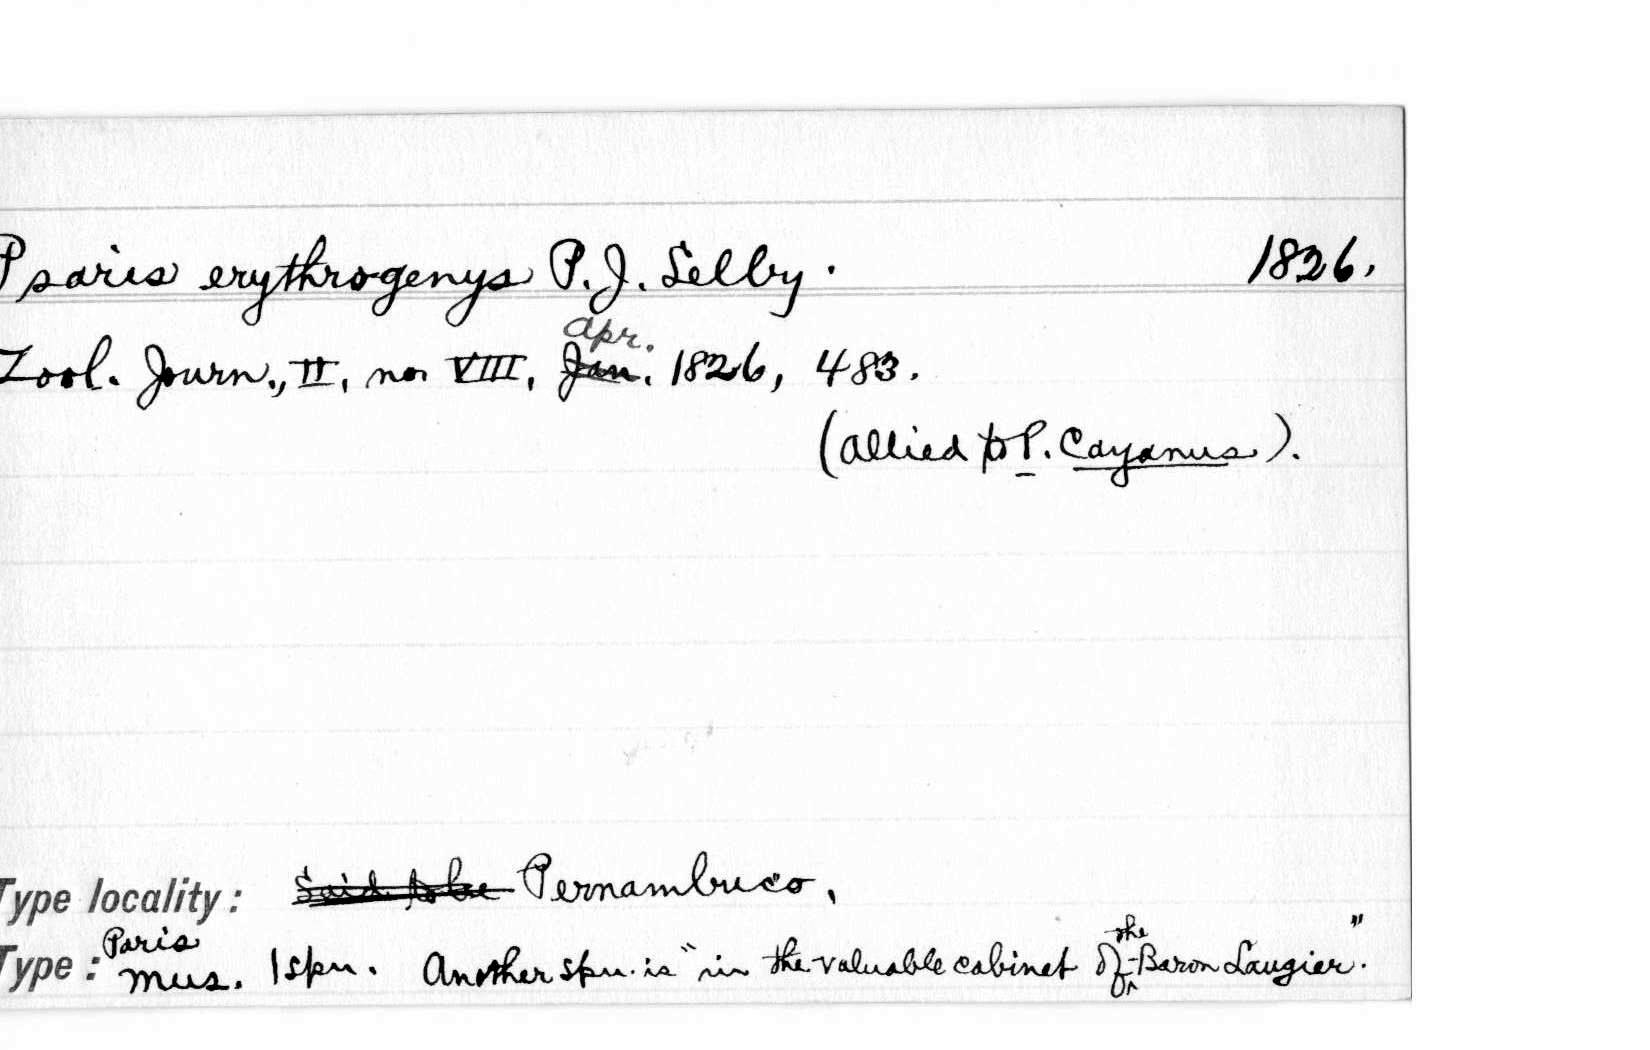 Psaris erythrogenys P. J. Selby. 1826.
Zool. Journ., II, no. VIII, Jan. Apr. 1826, 483.
(allied to P. Cayanus).
Type locality: Said to be Pernambuco.
Type: Paris Mus. 1 spn. Another spn. is "in the valuable cabinet of the Baron Laugier."